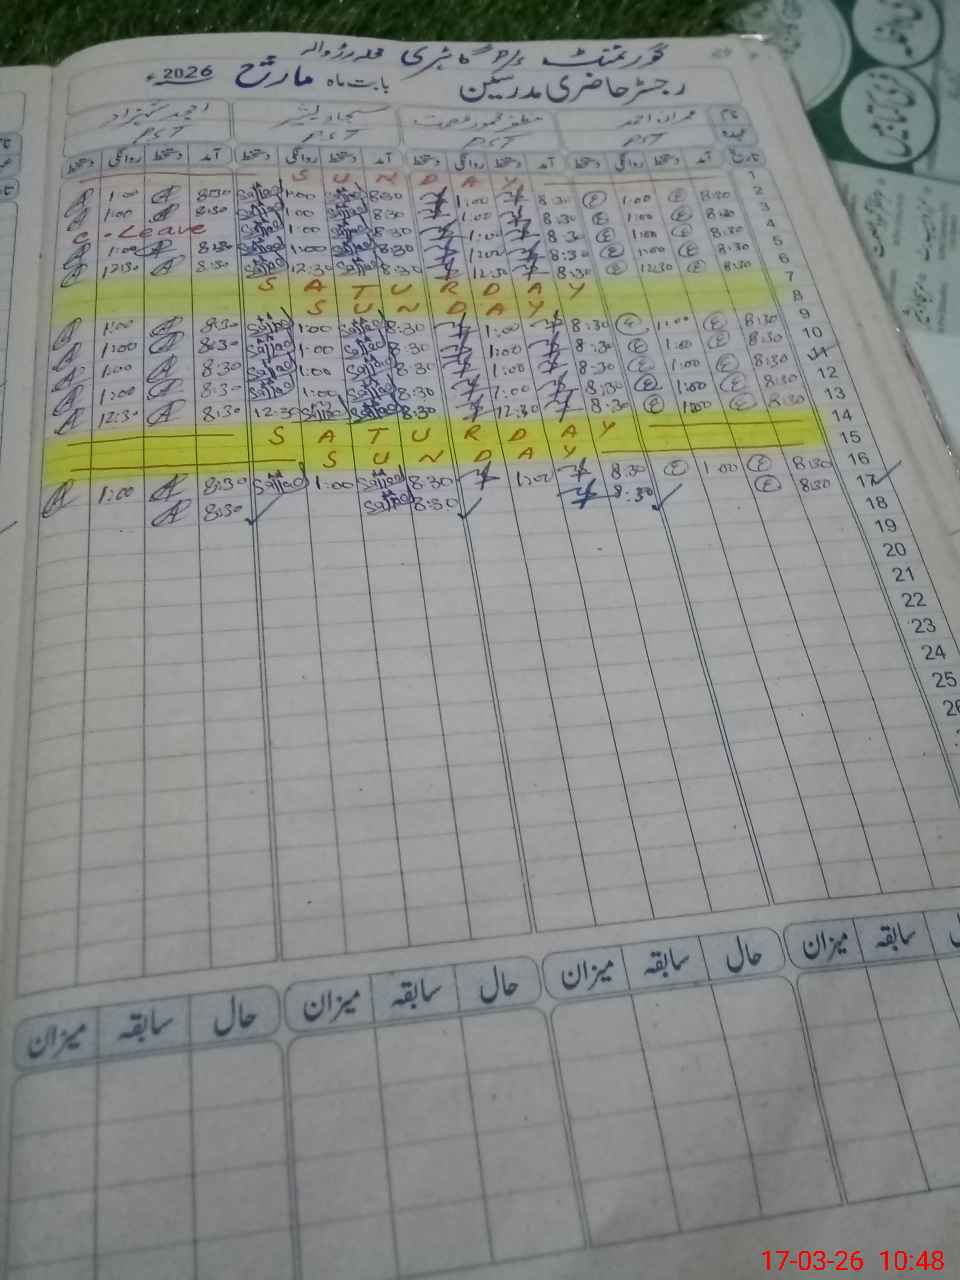 گورنمنٹ پرائمری محلہ رڑوالہ
رجسٹر حاضری مدرسین بابت ماہ مارچ 2026ء
نام عمران احمد سجاد بشیر احمد شہزاد
عہدہ PST PST PST PST
تاریخ آمد دستخط روانگی دستخط آمد دستخط روانگی دستخط آمد دستخط روانگی دستخط آمد دستخط روانگی دستخط
1 SUNDAY
2 8:30 E 1:00 E 8:30 1:00 8:30 Sajjad 1:00 Sajjad 8:30 A 1:00 A
3 8:30 E 1:00 E 8:30 1:00 8:30 Sajjad 1:00 Sajjad 8:30 A 1:00 A
4 8:30 E 1:00 E 8:30 1:00 8:30 Sajjad 1:00 Sajjad C.Leave
5 8:30 E 1:00 E 8:30 1:00 8:30 Sajjad 1:00 Sajjad 8:30 A 1:00 A
6 8:30 E 12:30 E 8:30 12:30 8:30 Sajjad 12:30 Sajjad 8:30 A 12:30 A
7 SATURDAY
8 SUNDAY
9 8:30 E 1:00 E 8:30 1:00 8:30 Sajjad 1:00 Sajjad 8:30 A 1:00 A
10 8:30 E 1:00 E 8:30 1:00 8:30 Sajjad 1:00 Sajjad 8:30 A 1:00 A
11 8:30 E 1:00 E 8:30 1:00 8:30 Sajjad 1:00 Sajjad 8:30 A 1:00 A
12 8:30 E 1:00 E 8:30 1:00 8:30 Sajjad 1:00 Sajjad 8:30 A 1:00 A
13 8:30 E 1:00 E 8:30 12:30 8:30 Sajjad Sajjad 12:30 8:30 A 12:30 A
14 SATURDAY
15 SUNDAY
16 8:30 E 1:00 E 8:30 1:00 8:30 Sajjad 1:00 Sajjad 8:30 A 1:00 A
17 8:30 E 8:30 8:30 Sajjad 8:30 A
18
19
20
21
22
23
24
25
26
حال سابقہ میزان حال سابقہ میزان حال سابقہ میزان حال سابقہ میزان
17-03-26 10:48